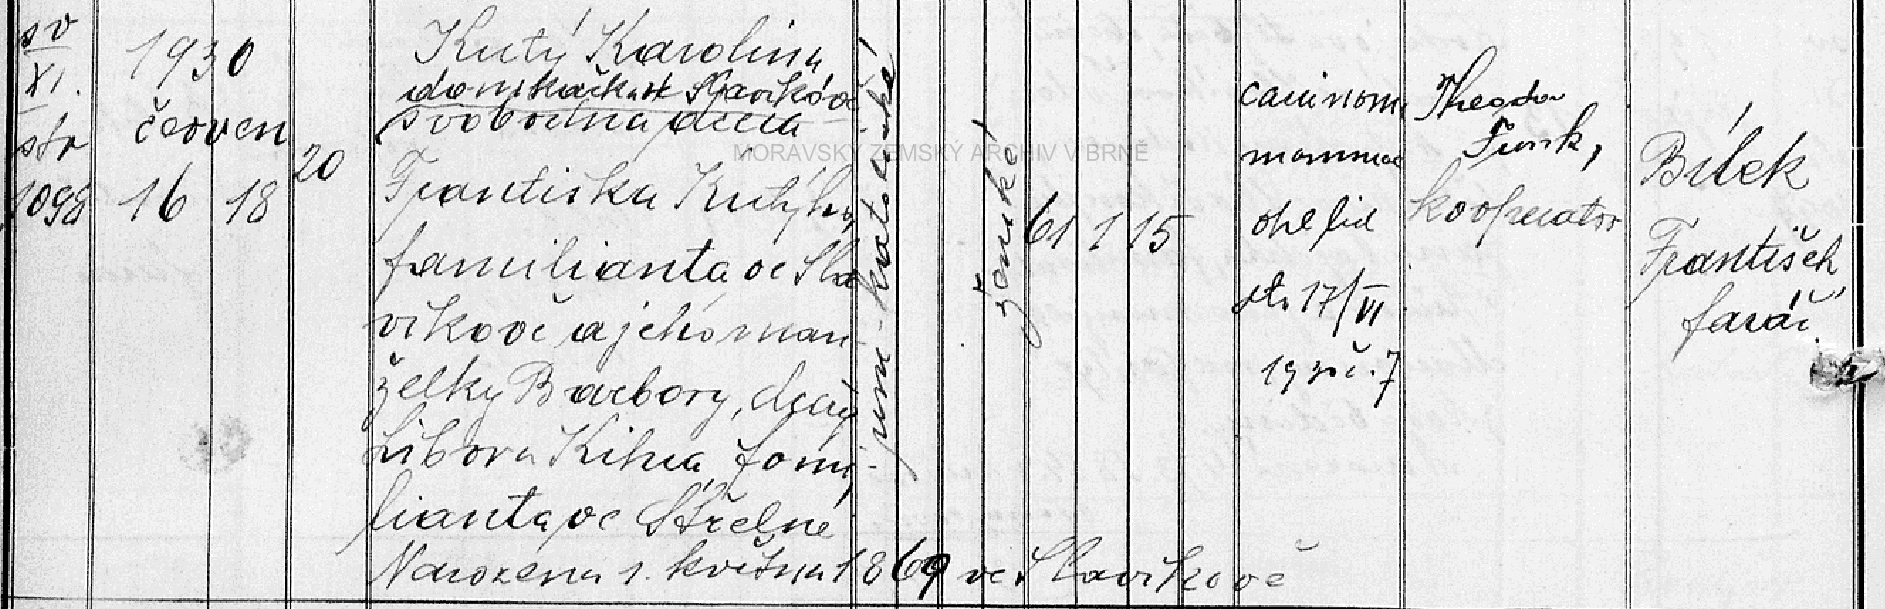 sv
XI.
str
1098
1930
červen
16 18
20
Kutý Karolina
domkářka ve Slavíkově
svobodná dcera
Františka Kutýho,
familianta ve Sla
víkově a jeho man
želky Barbory, dcery
Libora Kihra, fami-
lianta ve Střelné
Narozena 1. května 1869 ve Slavíkově
řím-katolické
ženské
61 1 15
carcinoma
mammae
ohl lid
dto 17/VI
1930 č. 7
Theodor
Funk,
kooperator
Bílek
František
farář
MORAVSKÝ ZEMSKÝ ARCHIV V BRNĚ